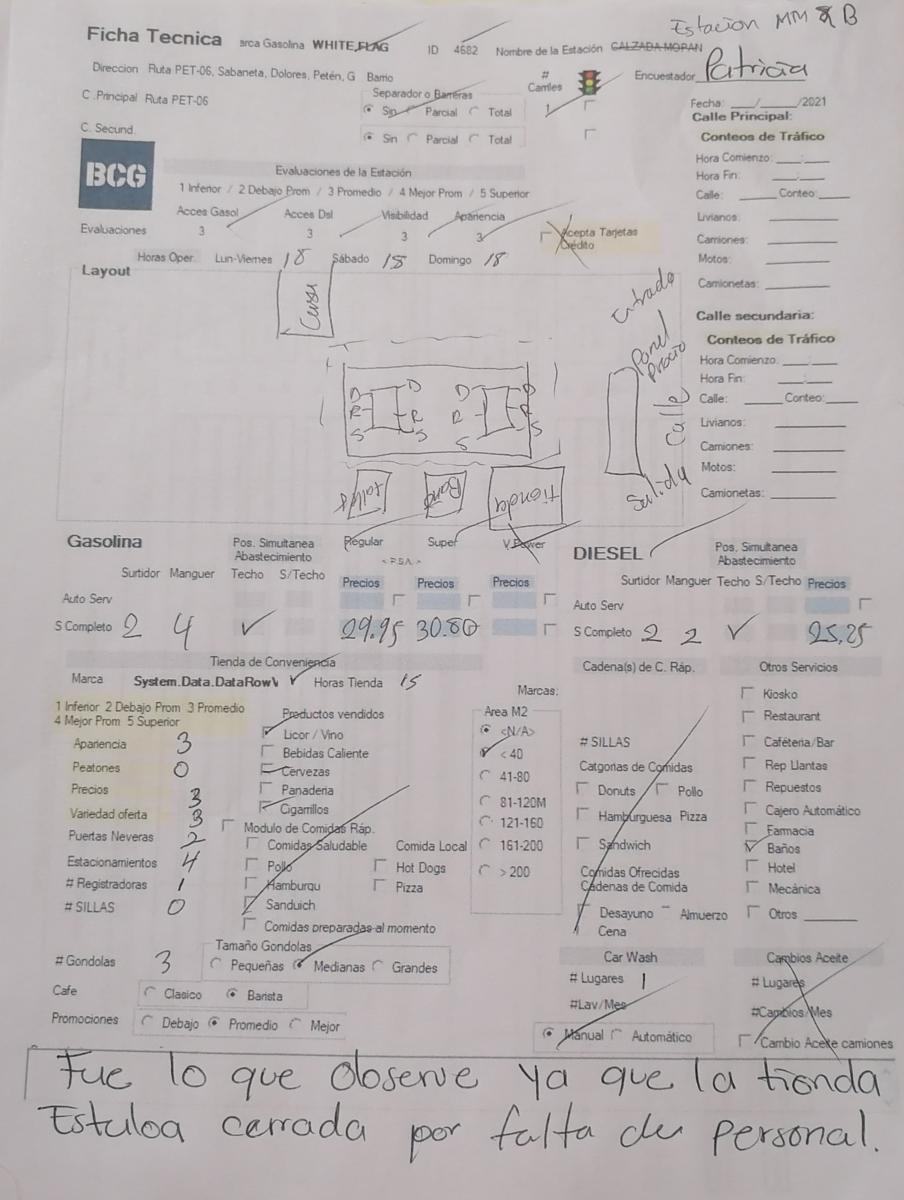 Estacion MM & B
Ficha Tecnica arca Gasolina WHITE FLAG ID 4682 Nombre de la Estación CALZADA MOPAN
Direccion Ruta PET-06, Sabaneta, Dolores, Petén, G Barrio # Carriles Encuestador Patricia
C .Principal Ruta PET-06 Separador o Barreras
Sin Parcial Total 1
Fecha: ___/___/2021
C. Secund. Sin Parcial Total
Calle Principal:
Conteos de Tráfico
Hora Comienzo: ___:___
Hora Fin: ___:___
Calle: ____ Conteo:____
Livianos:
Camiones:
Motos:
Camionetas:
BCG
Evaluaciones de la Estación
1 Inferior / 2 Debajo Prom / 3 Promedio / 4 Mejor Prom / 5 Superior
Acces Gasol Acces Dsl Visibilidad Apariencia
Evaluaciones 3 3 3 3 Acepta Tarjetas Crédito
Horas Oper. Lun-Viernes 18 Sábado 18 Domingo 18
Layout
Casa
Entrada
Panel Precio
Calle
Salida
D D D D
R R R R
S S S S
taller Baño tienda
Calle secundaria:
Conteos de Tráfico
Hora Comienzo: ___:___
Hora Fin: ___:___
Calle: ____ Conteo:____
Livianos:
Camiones:
Motos:
Camionetas:
Gasolina Pos. Simultanea Abastecimiento Regular Super V Power
Surtidor Manguer Techo S/Techo Precios Precios Precios
Auto Serv
S Completo 2 4 29.95 30.80
DIESEL Pos. Simultanea Abastecimiento
Surtidor Manguer Techo S/Techo Precios
Auto Serv
S Completo 2 2 25.25
Tienda de Conveniencia
Marca System.Data.DataRowV Horas Tienda 15
1 Inferior 2 Debajo Prom 3 Promedio
4 Mejor Prom 5 Superior
Apariencia 3
Peatones 0
Precios 3
Variedad oferta 3
Puertas Neveras 2
Estacionamientos 4
# Registradoras 1
# SILLAS 0
Productos vendidos
Licor / Vino
Bebidas Caliente
Cervezas
Panaderia
Cigarrillos
Modulo de Comidas Ráp.
Comidas Saludable Comida Local
Pollo Hot Dogs
Hamburqu Pizza
Sanduich
Comidas preparadas al momento
Marcas:
Area M2
<N/A>
< 40
41-80
81-120M
121-160
161-200
> 200
Cadena(s) de C. Ráp.
# SILLAS
Catgorias de Comidas
Donuts Pollo
Hamburguesa Pizza
Sandwich
Comidas Ofrecidas
Cadenas de Comida
Desayuno Almuerzo
Cena
Otros Servicios
Kiosko
Restaurant
Caféteria/Bar
Rep Llantas
Repuestos
Cajero Automático
Farmacia
Baños
Hotel
Mecánica
Otros ________
# Gondolas 3 Tamaño Gondolas
Pequeñas Medianas Grandes
Cafe Clasico Barista
Promociones Debajo Promedio Mejor
Car Wash
# Lugares 1
#Lav/Mes
Manual Automático
Cambios Aceite
# Lugares
#Cambios/Mes
Cambio Aceite camiones
Fue lo que observe ya que la tienda
Estuba cerrada por falta de personal.